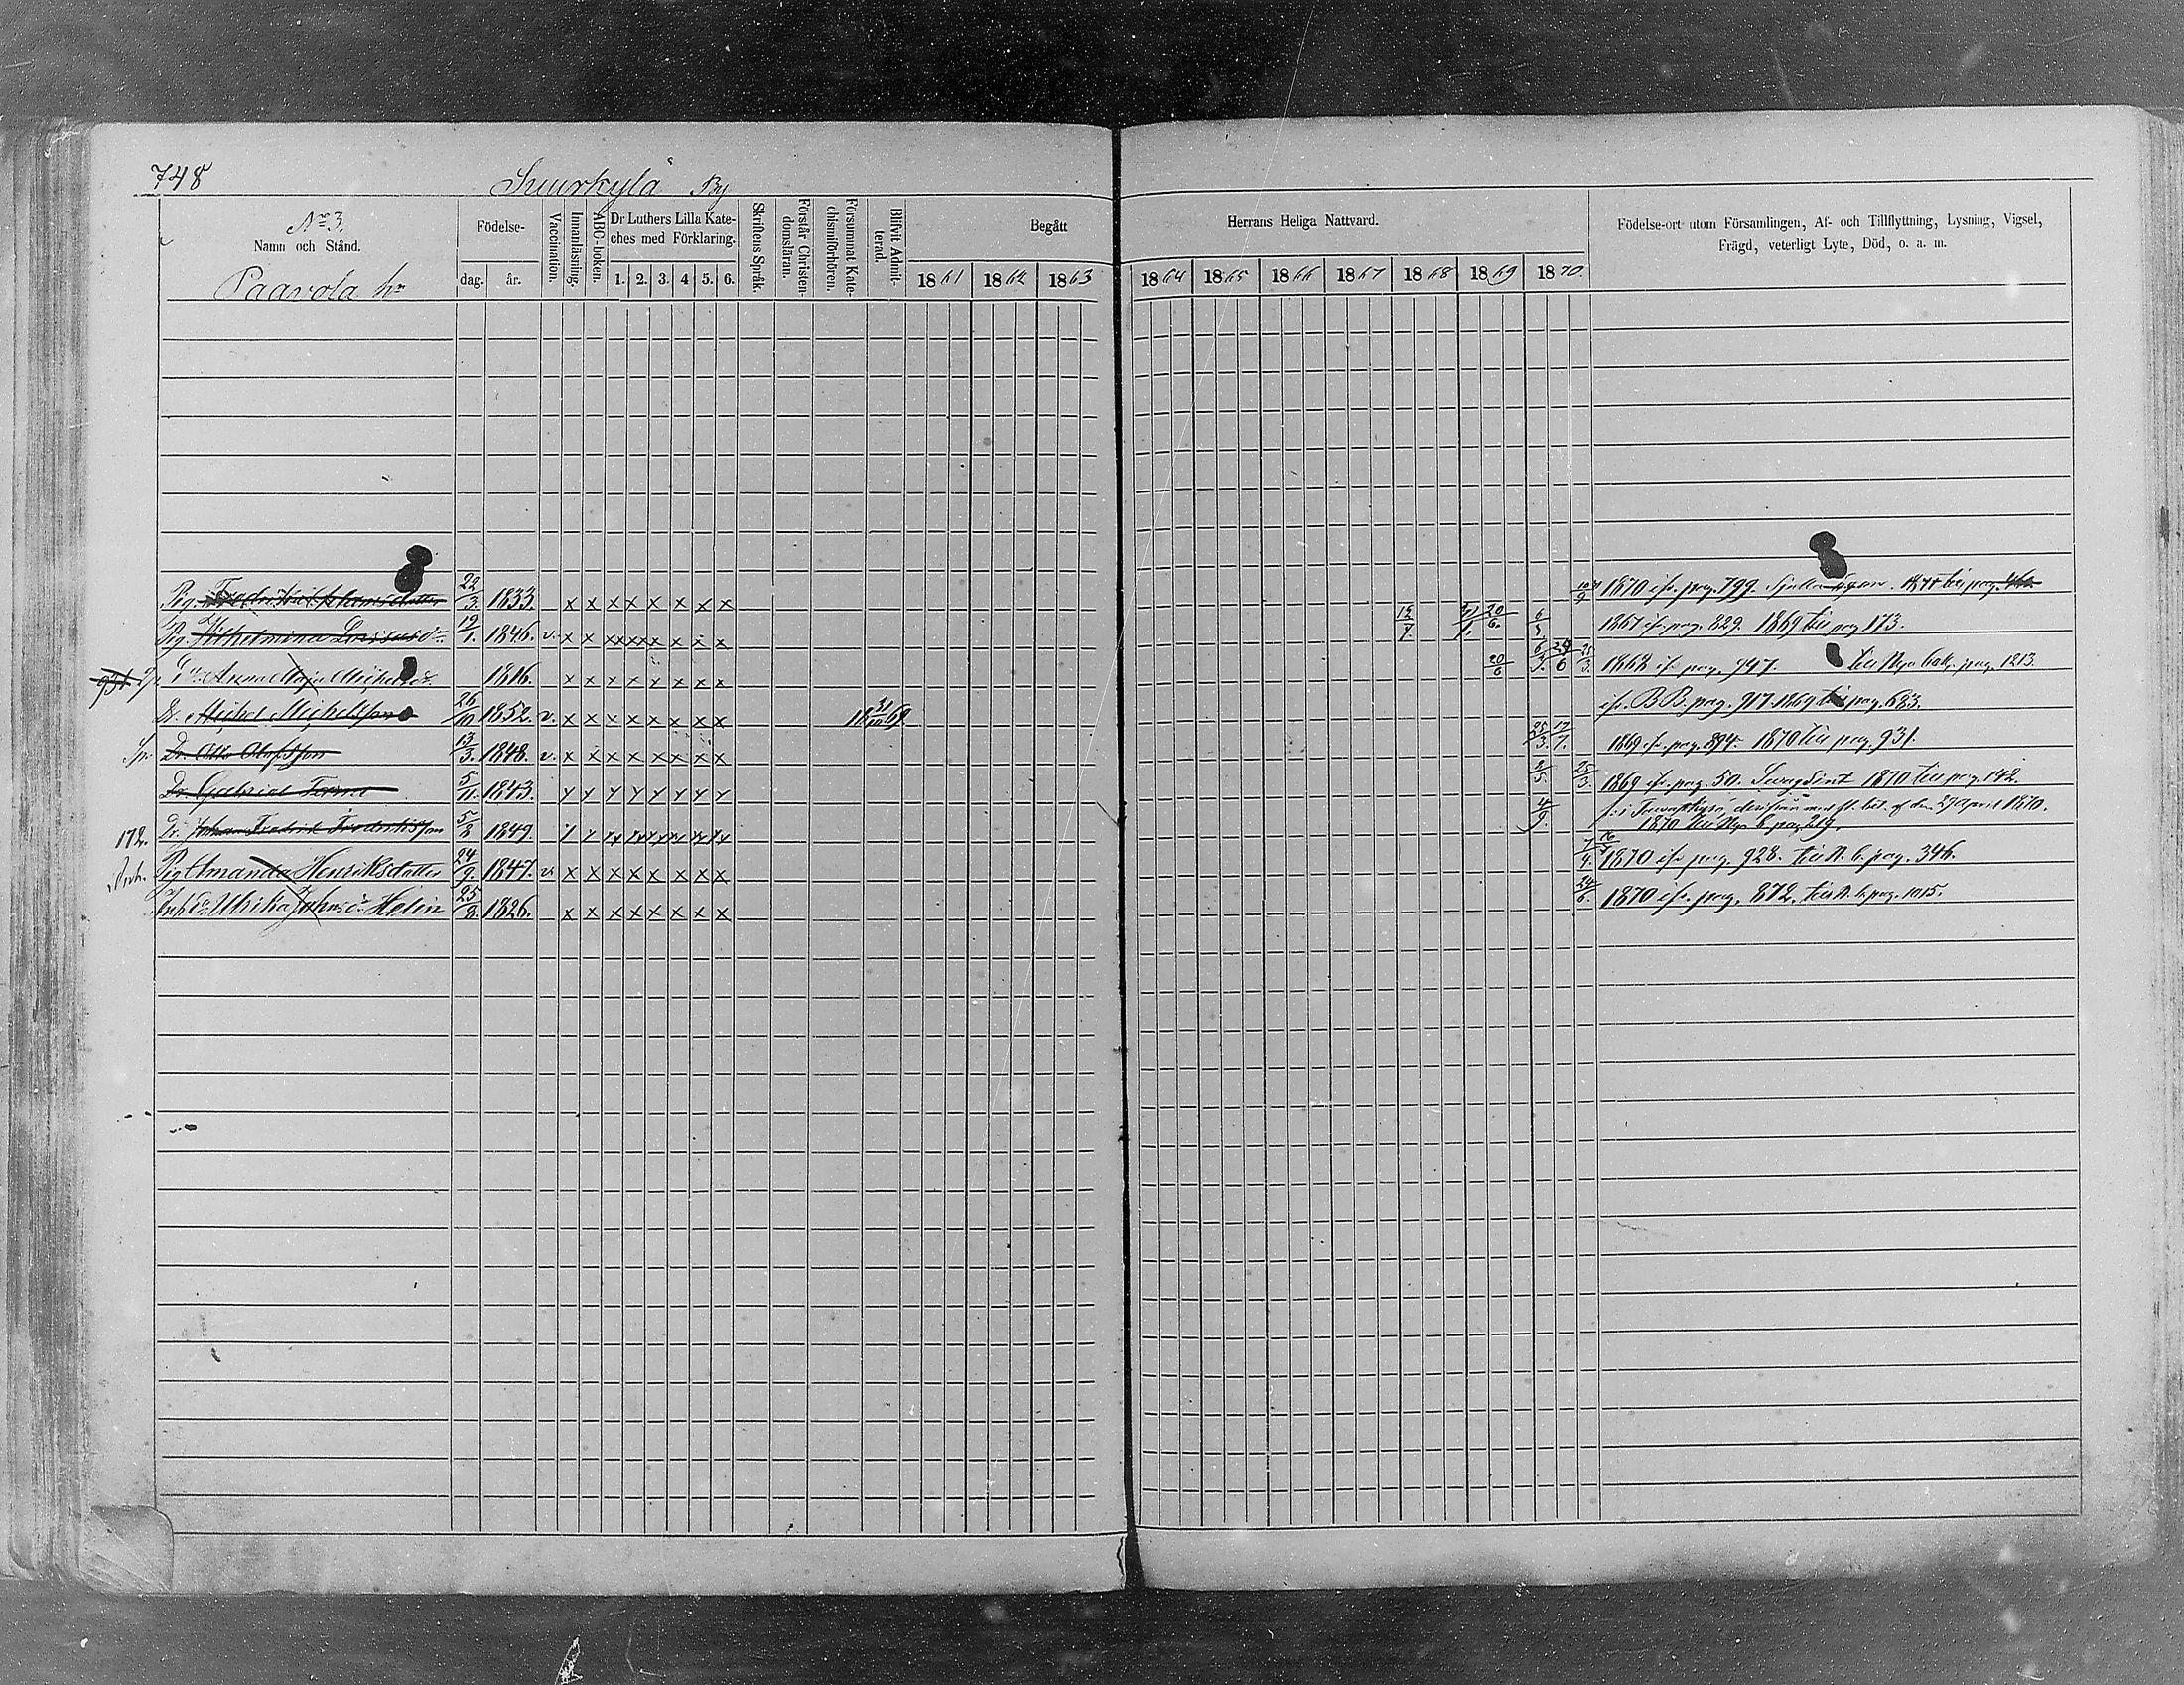 748
Suurkylä By
No 3.
Namn och Stånd.
Paavola hn
Födelse-
dag. år.
Vaccination.
Innanläsning.
ABC-boken.
Dr Luthers Lilla Kate-
ches med Förklaring.
1. 2. 3. 4 5. 6.
Skriftens Språk.
Förstår Christen-
domsläran.
Försummat Kate-
chismiförhören.
Blifvit Admit-
terad.
Begått
1861 1862 1863
Herrans Heliga Nattvard.
1864 1865 1866 1867 1868 1869 1870
Födelse-ort utom Församlingen, Af- och Tillflyttning, Lysning, Vigsel,
Frägd, veterligt Lyte, Död, o. a. m.
Pig. 22/3 1833. x x x x x x x x 1870 ifr. pag. 799.
Pig. Wilhelmina 19/1. 1846. v. x x xx xx x x x x 1867 ifr pag. 829. 1869 till pag 173.
931 Anna Maja 1816. x x x x x x x x 20/6 1868 ifr pag. 747. till Nya bok. pag. 1213.
Dr. Michel Michelsson 26/10 1852. v. x x x x x x x x 18 31/10 69 ifr. B B. pag. 917. 1869 till pag. 683.
Dr. Otto 13/3. 1848. v. x x x x x x x x 25/3. 17/7. 1869 ifr. pag. 894. 1870 till pag. 931.
Dr. Gabriel 5/11. 1843. x x x x x x x x 25/3. 1869 ifr. pag. 50. 1870 till pag. 142.
172. Dr. Johan Fredrik Fredriksson 5/8 1849. 4/9. f. i med fl. bet. af den 29 April 1870.
1870 till Nya b. pag. 219.
Pig Amanda Henriksdotter 24/9. 1847. v. x x x x x x x x 1870 ifr pag. 928. till N. b. pag. 346.
Ulrika Johnsdr Helin 25/8. 1826. x x x x x x x x 24/6. 1870 ifr. pag. 872. till N. b. pag. 1015.